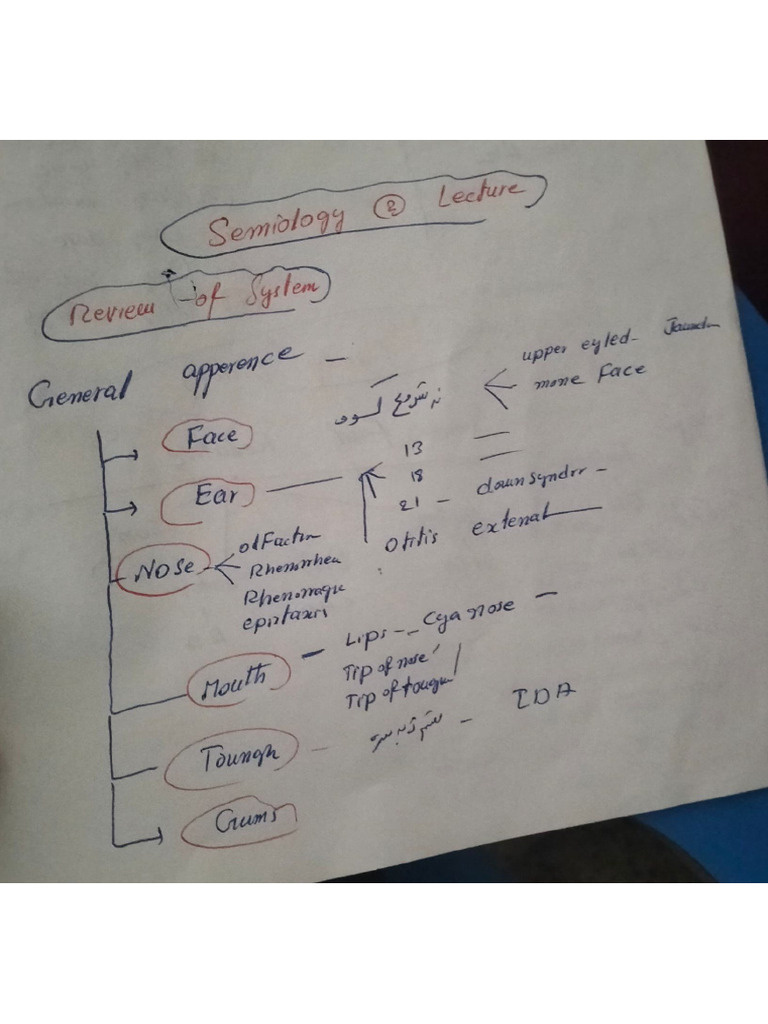 Semiology 2 Lecture
Review of System
General apperence –
Face
upper eyled -
mone Face
Ear
13
18
21 - down syndr -
Otitis extenal
Nose
olfaction
Rhenorrhea
Rhenorragu
epistaxis
Mouth – Lips -- Cya nose –
Tip of nose
Tip of tougu
Toungh - – IDA
Gums